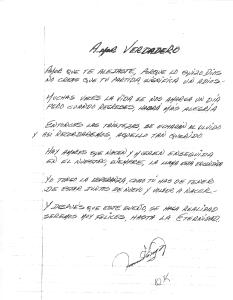 AMOR VERDADERO
AMOR QUE TE ALEJASTE, PORQUE LO QUIZO DIOS
NO CREAS QUE TU PARTIDA SIGNIFICA UN ADIOS-
MUCHAS VECES LA VIDA SE NOS AMARGA UN DIA
PERO CUANDO QUEREMOS, HABRÁ MAS ALEGRIA
ENTONCES LAS TRISTEZAS, SE ECHARAN AL OLVIDO
Y ASI RECORDAREMOS, AQUELLO TAN QUERIDO
HAY AMORES QUE NACEN Y MUEREN ENSEGUIDA
EN EL NUESTRO, SIEMPRE, LA LLAMA ESTA ENCENDIDA
YO TENGO LA ESPERANZA, COMO TU HAS DE TENER
DE ESTAR JUNTOS DE NUEVO Y VOLVER A NACER-
Y DESPUES QUE ESTE SUEÑO, SE HAGA REALIDAD
SEREMOS MUY FELICES, HASTA LA ETERNIDAD.